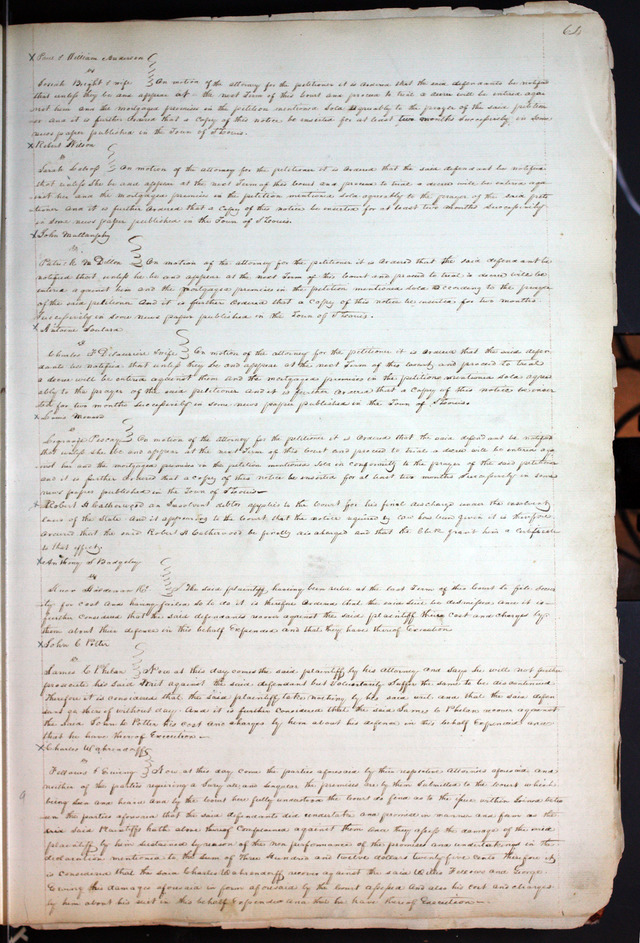 62
x Paul & William Anderson
vs
Josiah Bright & wife On motion of the attorney for the petitioner it is ordered that the said defendants be notified
that unless they be and appear at the next Term of this Court and proceed to trial a decree will be entered aga
inst him and the mortgaged premises in the petition mentioned sold agreeably to the prayer of the said petition
er and it is further ordered that a copy of this notice be inserted for at least two months successively in some
news paper published in the Town of St Louis.
x Robert Wilson
vs
Sarah On motion of the attorney for the petitioner it is ordered that the said defendant be notified
that unless she be and appear at the next Term of this Court and proceed to trial a decree will be entered aga
inst her and the mortgaged premises in the petition mentioned sold agreeably to the prayer of the said peti
tioner And it is further ordered that a copy of this notice be inserted for at least two months successively
in some news paper published in the Town of St Louis.
x John Mullanphy
vs
Patrick On motion of the attorney for the petitioner it is ordered that the said defendant be
notified that unless he be and appear at the next Term of this Court and proceed to trial a decree will be
entered against him and the mortgaged premises in the petition mentioned sold according to the prayer
of the said petitioner And it is further ordered that a copy of this notice be inserted for two months
successively in some news paper published in the Town of St Louis.
x Antoine
vs
Charles & wife On motion of the attorney for the petitioner it is ordered that the said defen
dants be notified that unless they be and appear at the next Term of this Court and proceed to trial
a decree will be entered against them and the mortgaged premises in the petition mentioned sold agree
ably to the prayer of the said petitioner And it is further ordered that a copy of this notice be inser
ted for two months successively in some news paper published in the Town of St Louis.
x Louis
vs
On motion of the attorney for the petitioner it is ordered that the said defendant be notified
that unless he be and appear at the next Term of this Court and proceed to trial a decree will be entered aga
inst him and the mortgaged premises in the petition mentioned sold in conformity to the prayer of the said petitioner
and it is further ordered that a copy of this notice be inserted for at least two months successively in some
news paper published in the Town of St Louis
x Robert H Catherwood an Insolvent debtor applies to the Court for his final discharge under the insolvent
laws of the State and it appearing to the Court that the notice required by law has been given it is therefore
ordered that the said Robert H Catherwood be finally discharged and that the Clerk grant him a certificate
to that effect.
x Anthony S Badgeley
vs
The said plaintiff having been ruled at the last Term of this Court to file secu
rity for cost And having failed so to do it is therefore ordered that the said suit be dismissed And it is
further considered that the said defendants recover against the said plaintiff their cost and charges by
them about their defence in this behalf expended and that they have thereof Execution
x John C Potter
vs
James C Phelan Now at this day comes the said plaintiff by his Attorney and says he will not further
prosecute his suit against the said defendant but voluntarily suffers the same to be discontinued
Therefore it is considered that the said plaintiff take nothing by his said writ and that the said defen
dant go thereof without day And it is further considered that the said James C Phelan recover against
the said John C Potter his cost and charges by him about his defence in this behalf expended and
that he have thereof Execution
x Charles Wahrendorff
vs
Fellows & Ewing Now at this day come the parties aforesaid by their respective Attornies aforesaid and
neither of the parties requiring a Jury all and singular the premises are by them submitted to the Court which
being seen and heard and by the Court here fully understood the Court do find as to the issue within joined betwe
en the parties aforesaid that the said defendants did undertake and promise in manner and form as the
said Plaintiff hath above thereof complained against them And they assess the damages of the said
plaintiff by him sustained by reason of the non performance of the promises and undertakings in the
declaration mentioned to the sum of Three Hundred and twelve dollars twenty five cents Therefore it
is considered that the said Charles Wahrendorff recover against the said Willis Fellows and George
Ewing his damages aforesaid in form aforesaid by the Court assessed and also his cost and charges
by him about his suit in this behalf expended And that he have thereof Execution